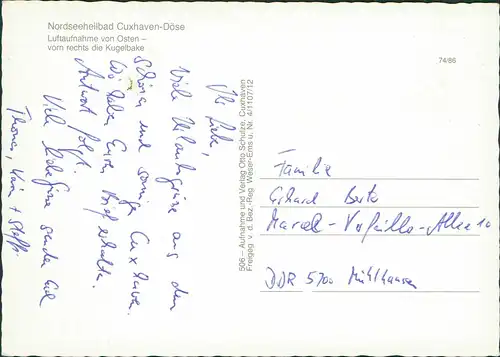 Nordseeheilbad Cuxhaven-Döse
Luftaufnahme von Osten –
vorn rechts die Kugelbake
74/86
Ihr Lieben,
Viele Urlaubsgrüße aus dem
schönen und sonnigen Cuxhaven.
Wir haben Euren Brief erhalten.
Antwort folgt.
Viele liebe Grüße senden Euch
Thomas, + Steffi.
506 – Aufnahme und Verlag Otto Schulze, Cuxhaven
Freigeg. v. d. Bez.-Reg. Weser-Ems u. Nr. 4/1107/12
Familie
Erhard
Marcel-Verfaillle-Allee 10
DDR 5700 Mühlhausen